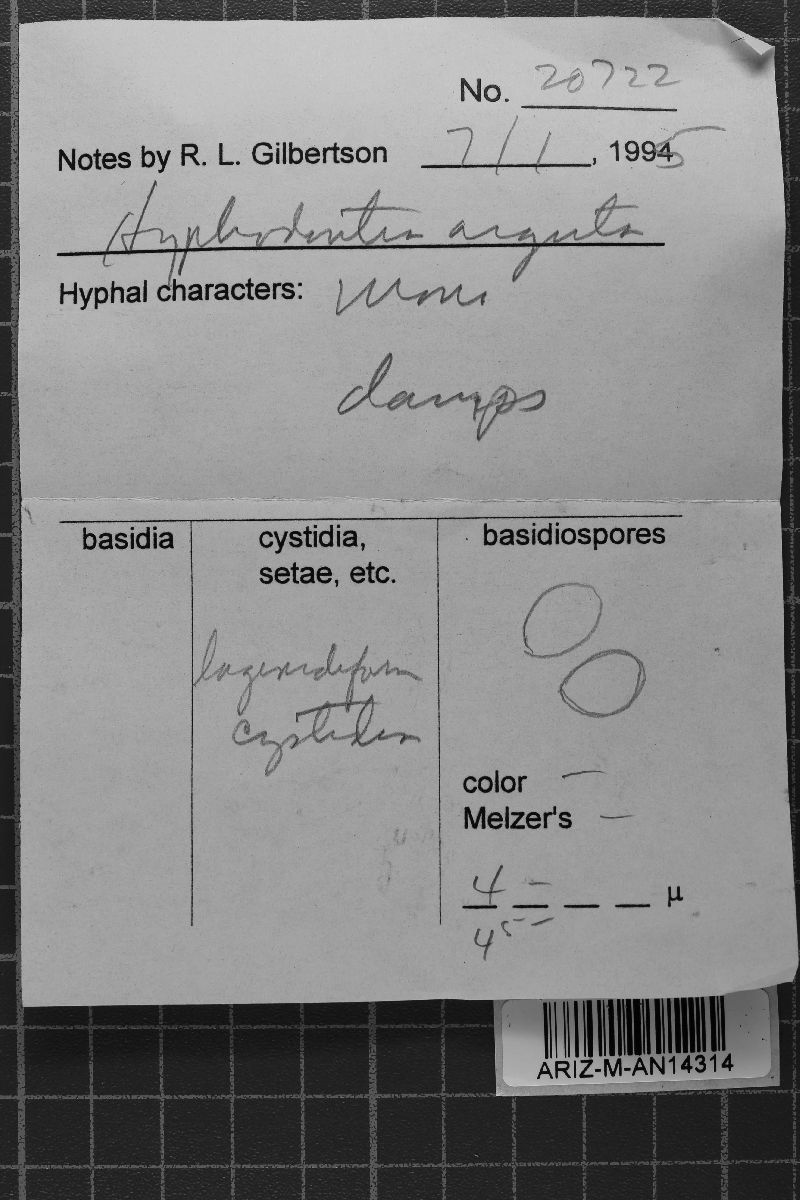 No. 20722
Notes by R. L. Gilbertson 7/1, 1995
Hyphodontia arguta
Hyphal characters: mono
clamps
basidia
cystidia,
setae, etc.
basidiospores
lageniform
cystidia
color –
Melzer's –
4 – µ
45 –
ARIZ-M-AN14314